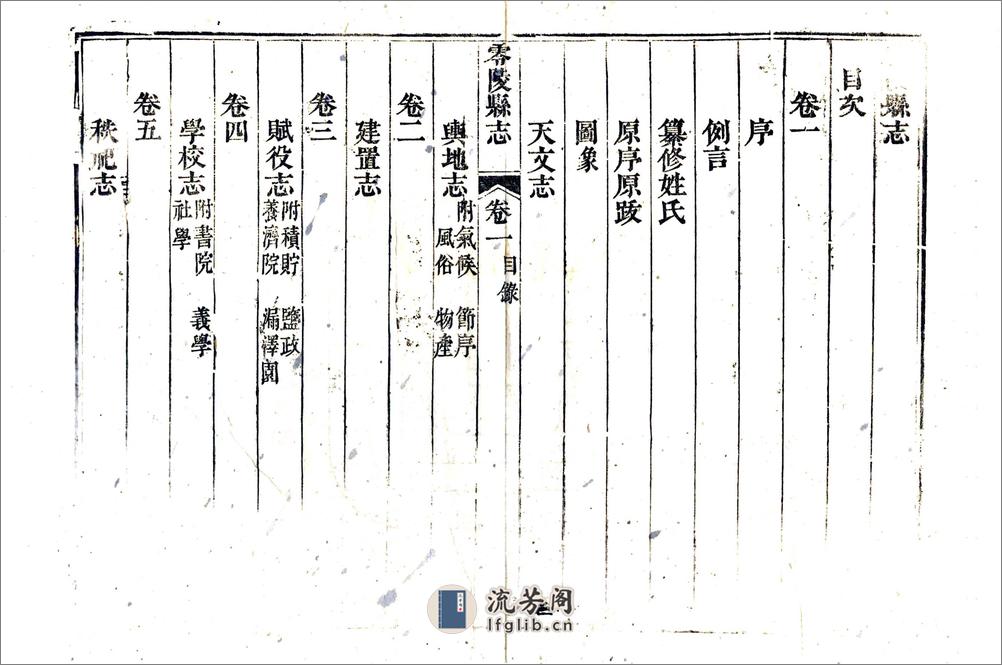 縣志
目次
卷一
序
例言
纂修姓氏
原序原跋
圖象
天文志
零陵縣志 卷一 目錄
輿地志 附氣候 節序 風俗 物產
卷二
建置志
卷三
賦役志 附積貯 鹽政 養濟院 漏澤園
卷四
學校志 附書院 義學 社學
卷五
秩祀志
流芳阁
lfglib.cn